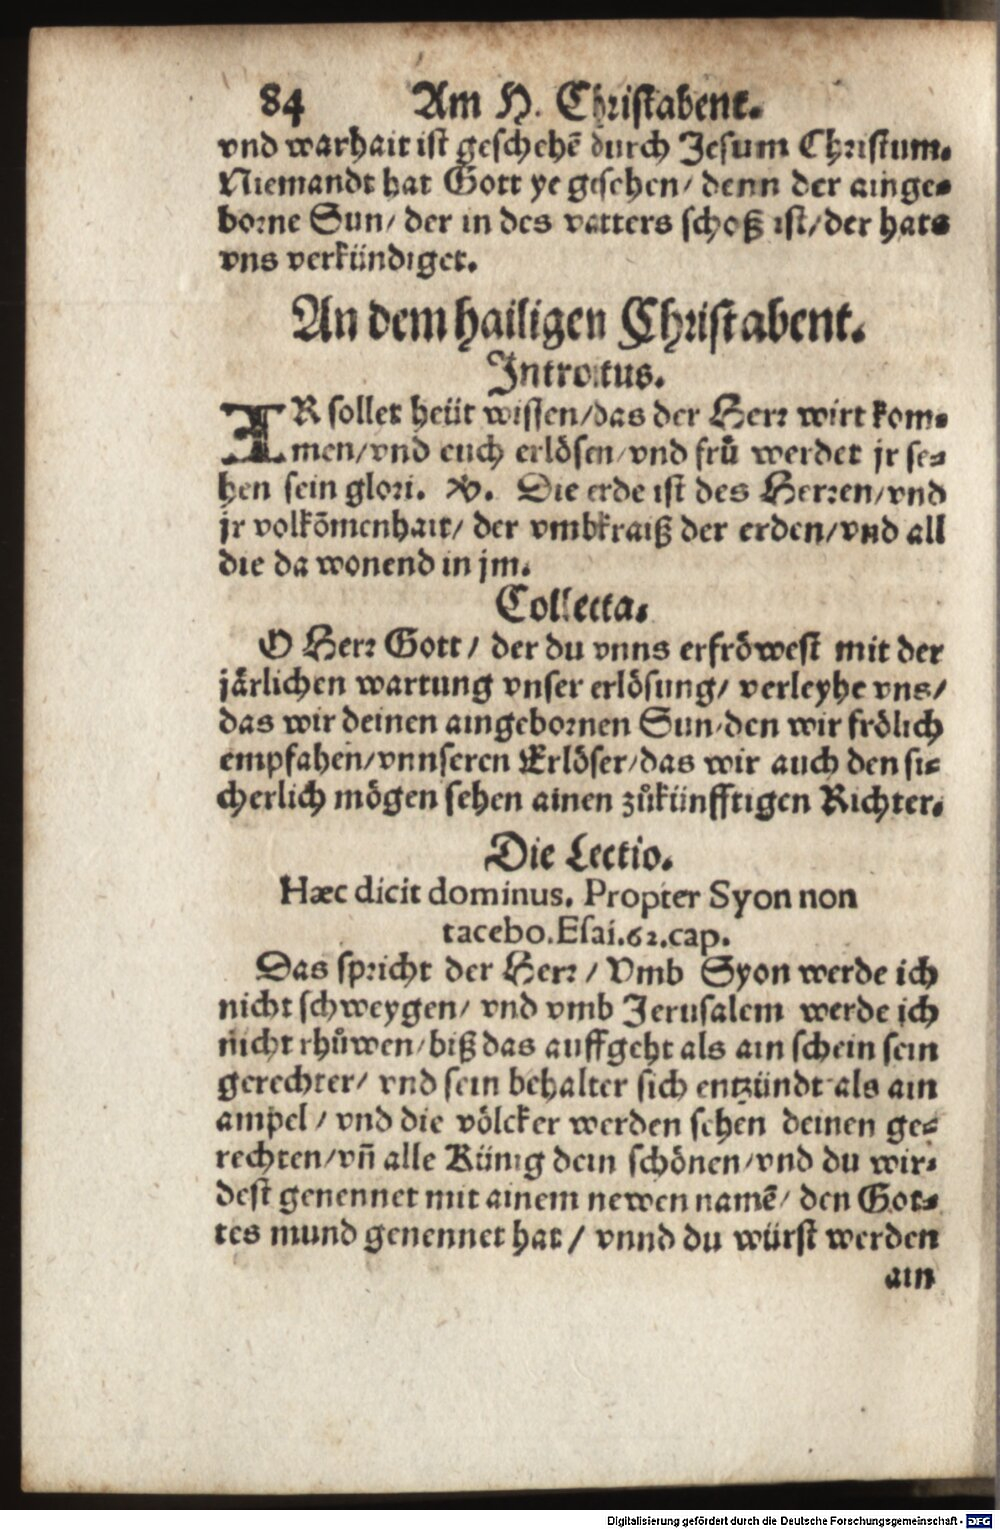 84 Am H. Christabent.
vnd warhait ist geschehẽ durch Jesum Christum.
Niemandt hat Gott ye gesehen/ denn der ainge-
borne Sun/ der in des vatters schoß ist/ der hats
vns verkündiget.
An dem hailigen Christabent.
Introitus.
IR sollet heüt wissen/das der Herr wirt kom-
men/vnd euch erlösen/vnd frů werdet jr se-
hen sein glori. V. Die erde ist des Herren/vnd
jr volkõmenhait/ der vmbkraiß der erden/vnd all
die da wonend in jm.
Collecta.
O Herr Gott/ der du vnns erfröwest mit der
järlichen wartung vnser erlösung/ verleyhe vns/
das wir deinen aingebornen Sun/den wir frölich
empfahen/vnnseren Erlöser/das wir auch den si-
cherlich mögen sehen ainen zůkünfftigen Richter.
Die Lectio.
Hæc dicit dominus. Propter Syon non
tacebo.Esai.62.cap.
Das spricht der Herr/ Vmb Syon werde ich
nicht schweygen/ vnd vmb Jerusalem werde ich
nicht rhůwen/biß das auffgeht als ain schein sein
gerechter/ vnd sein behalter sich entzündt als ain
ampel/ vnd die völcker werden sehen deinen ge-
rechten/vñ alle Künig dein schönen/vnd du wir-
dest genennet mit ainem newen namẽ/ den Got-
tes mund genennet hat/ vnnd du würst werden
ain
Digitalisierung gefördert durch die Deutsche Forschungsgemeinschaft - DFG